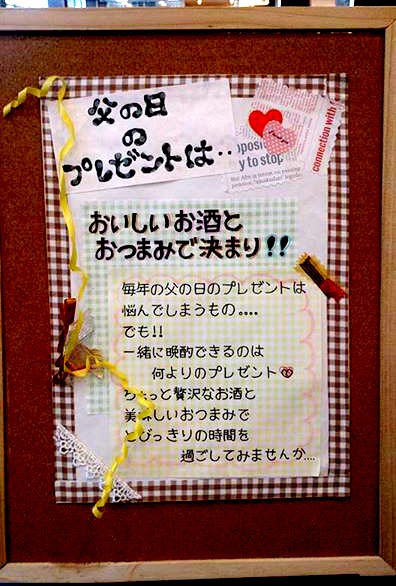 父の日
の
プレゼントは‥
connection with
pposi
y to stop
おいしいお酒と
おつまみで決まり!!
毎年の父の日のプレゼントは
悩んでしまうもの。。。。
でも!!
一緒に晩酌できるのは
何よりのプレゼント
ちょっと贅沢なお酒と
美味しいおつまみで
とびっきりの時間を
過ごしてみませんか....